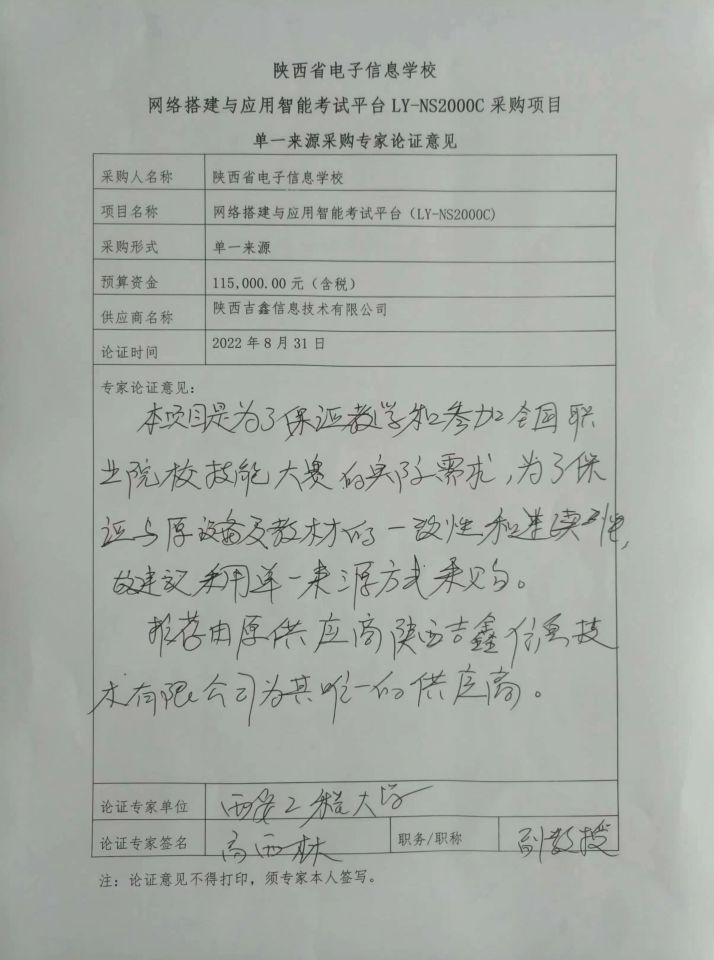 陕西省电子信息学校
网络搭建与应用智能考试平台 LY-NS2000C 采购项目
单一来源采购专家论证意见
采购人名称 陕西省电子信息学校
项目名称 网络搭建与应用智能考试平台（LY-NS2000C）
采购形式 单一来源
预算资金 115,000.00 元（含税）
供应商名称 陕西吉鑫信息技术有限公司
论证时间 2022 年 8 月 31 日
专家论证意见：
本项目是为了保证教学和参加全国职
业院校技能大赛的实际需求，为了保
证与原设备及教材的一致性和连续性，
故建议采用单一来源方式采购。
推荐由原供应商陕西吉鑫信息技
术有限公司为其唯一的供应商。
论证专家单位 西安工程大学
论证专家签名 高西林 职务/职称 副教授
注：论证意见不得打印，须专家本人签写。